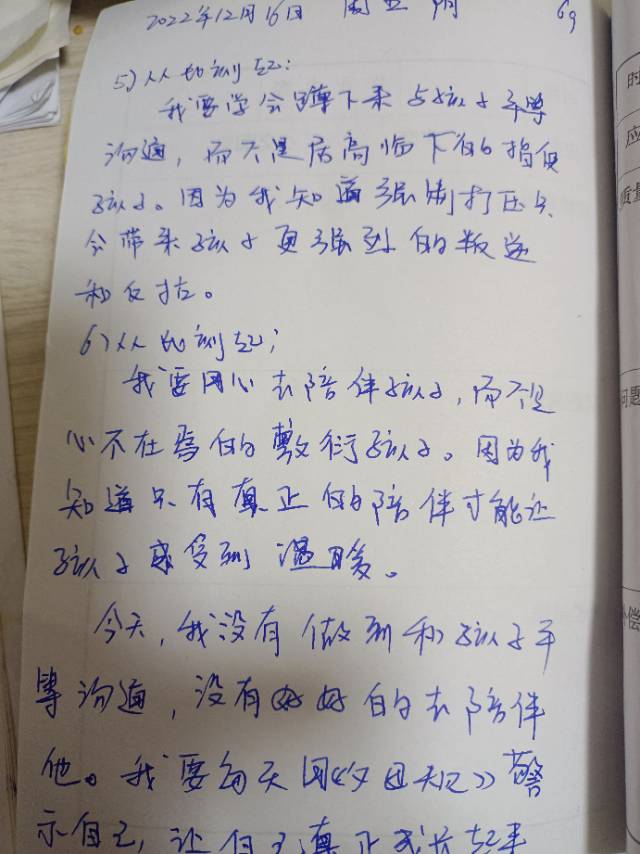 2022年12月16日 周五 阴 69
5)从此刻起:
我要学会蹲下来与孩子平等
沟通，而不是居高临下的指使
孩子。因为我知道强制打压只
会带来孩子更强烈的叛逆
和反抗。
6)从此刻起;
我要用心去陪伴孩子，而不是
心不在焉的敷衍孩子。因为我
知道只有真正的陪伴才能让
孩子感受到温暖。
今天，我没有做到和孩子平
等沟通，没有好好的去陪伴
他。我要每天用《父母规》警
示自己，让自己真正成长起来
时
应
质量
问题
补偿